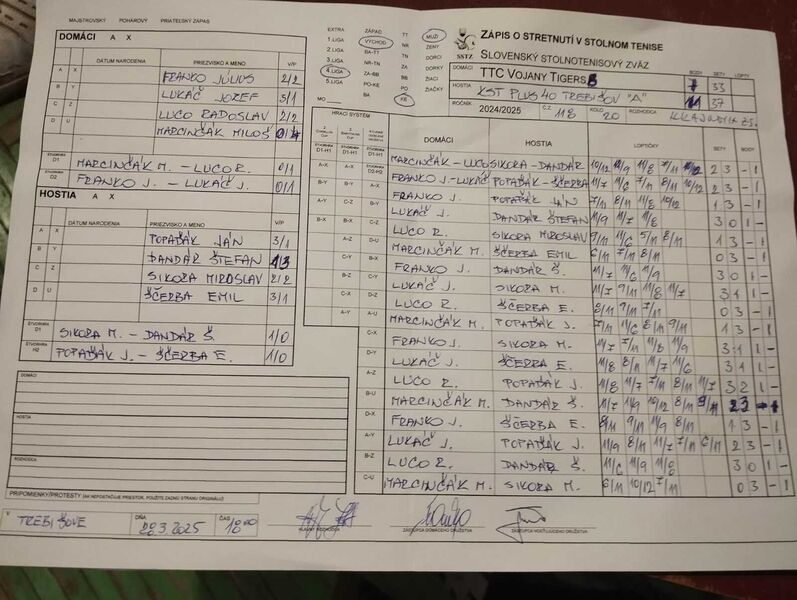 MAJSTROVSKÝ POHÁROVÝ PRIATEĽSKÝ ZÁPAS
DOMÁCI A X
DÁTUM NARODENIA PRIEZVISKO A MENO V/P
A X FRANKO JÚLIUS 2/2
B Y LUKÁČ JOZEF 3/1
C Z LUCO RADOSLAV 2/2
D U MARCINČÁK MILOŠ 0/4
ŠTVORHRA D1 MARCINČÁK M. - LUCO R. 0/1
D2 FRANKO J. - LUKÁČ J. 0/1
HOSTIA A X
DÁTUM NARODENIA PRIEZVISKO A MENO V/P
A X POPAĎÁK JÁN 3/1
B Y DANDÁR ŠTEFAN 1/3
C Z SIKORA MIROSLAV 2/2
D U ŠČERBA EMIL 3/1
ŠTVORHRA D1 SIKORA M. - DANDÁR Š. 1/0
ŠTVORHRA H2 POPAĎÁK J. - ŠČERBA E. 1/0
DOMÁCI
HOSTIA
ROZHODCA
PRIPOMIENKY/PROTESTY (AK NEPOSTAČUJE PRIESTOR, POUŽITE ZADNÚ STRANU ORIGINÁLU)
V TREBIŠOVE DŇA 22.3.2025 ČAS 10:00
HLAVNÝ ROZHODCA ZÁSTUPCA DOMÁCEHO DRUŽSTVA ZÁSTUPCA HOSŤUJÚCEHO DRUŽSTVA
EXTRA ZÁPAD TT MUŽI
1.LIGA VÝCHOD NR ŽENY
2.LIGA BA-TT TN DORCI
3.LIGA NR-TN ZA DORKY
4.LIGA ZA-BB BB ŽIACI
5.LIGA PO-KE PO ŽIAČKY
MO BA KE
SSTZ
ZÁPIS O STRETNUTÍ V STOLNOM TENISE
SLOVENSKÝ STOLNOTENISOVÝ ZVÄZ
BODY SETY LOPTY
DOMÁCI TTC VOJANY TIGERS B 7 33
HOSTIA KST PLUS 40 TREBIŠOV "A" 11 37
ROČNÍK 2024/2025 Č.Z. 118 KOLO 20 ROZHODCA
HRACÍ SYSTÉM DOMÁCI HOSTIA LOPTIČKY SETY BODY
MARCINČÁK - LUCO SIKORA - DANDÁR 2 3 - 1
FRANKO J. - LUKÁČ POPAĎÁK - ŠČERBA 11/7 11/6 7/11 8/11 10/12 2 3 - 1
FRANKO J. POPAĎÁK JÁN 1 3 - 1
LUKÁČ J. DANDÁR ŠTEFAN 11/9 11/7 11/8 3 0 1 -
LUCO R. SIKORA MIROSLAV 9/11 11/6 5/11 8/11 1 3 - 1
MARCINČÁK M. ŠČERBA EMIL 6/11 7/11 8/11 0 3 - 1
FRANKO J. DANDÁR Š. 11/7 11/6 11/9 3 0 1 -
LUKÁČ J. SIKORA M. 11/7 9/11 11/8 11/7 3 1 1 -
LUCO R. ŠČERBA E. 8/11 9/11 7/11 0 3 - 1
MARCINČÁK M. POPAĎÁK J. 7/11 11/6 8/11 9/11 1 3 - 1
FRANKO J. SIKORA M. 11/7 7/11 11/8 11/9 3 1 1 -
LUKÁČ J. ŠČERBA E. 11/8 8/11 11/7 11/6 3 1 1 -
LUCO R. POPAĎÁK J. 11/8 11/7 7/11 8/11 11/7 3 2 1 -
MARCINČÁK M. DANDÁR Š. 11/7 11/9 10/12 8/11 9/11 2 3 - 1
FRANKO J. ŠČERBA E. 8/11 9/11 11/9 8/11 1 3 - 1
LUKÁČ J. POPAĎÁK J. 11/9 8/11 11/7 7/11 6/11 2 3 - 1
LUCO R. DANDÁR Š. 11/6 11/9 11/8 3 0 1 -
MARCINČÁK M. SIKORA M. 6/11 10/12 7/11 0 3 - 1